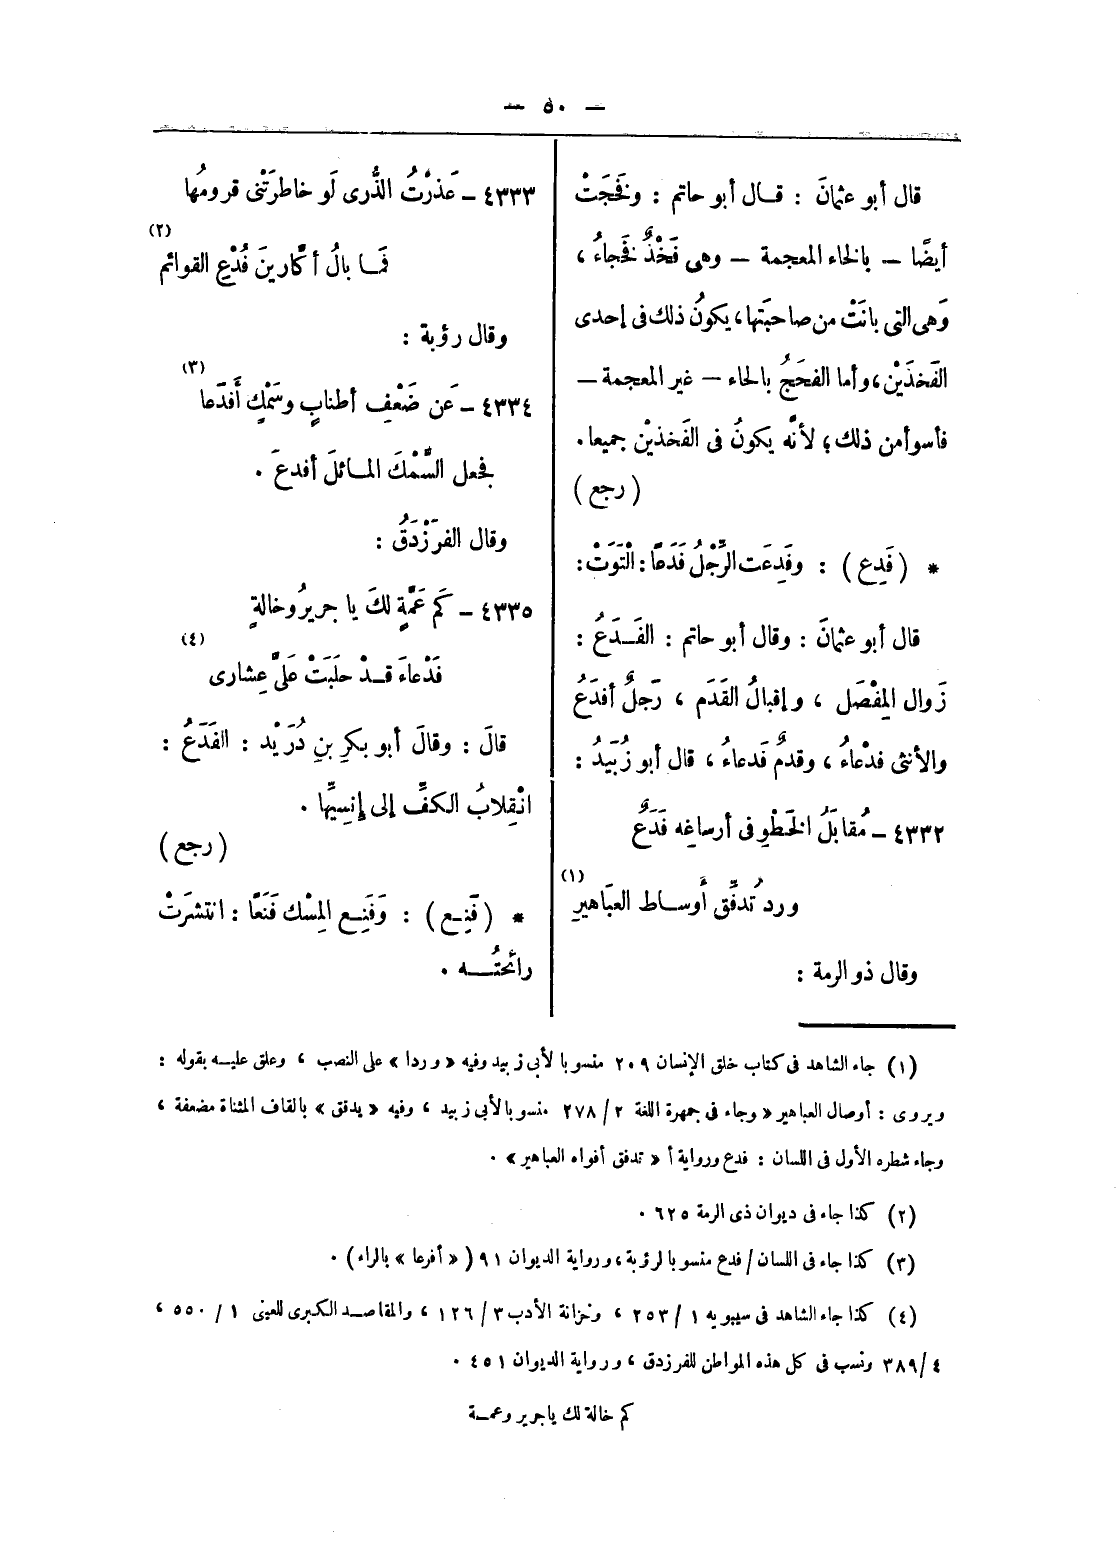 — ٥٠ —
قال أبو عثمانَ : قال أبو حاتم : وفَخَجَتْ
أيضًا — بالخاء المعجمة — وهى فَخْذٌ فَخجاءُ ،
وَهى التى بانَتْ من صاحبَتها ، يكونُ ذلك فى إحدى
الفَخذَيْن ، وأما الفحَجُ بالحاء — غير المعجمة —
فأسوأ من ذلك ؛ لأنَّه يكونُ فى الفَخذيْن جميعا .
( رجع )
* ( فَدِع ) : وفَدِعَت الرِّجْلُ فَدَعًا : الْتَوَتْ :
قال أبو عثمانَ : وقال أبو حاتم : الفَدَعُ :
زَوال المِفْصَل ، وإقبالُ القَدَم ، رَجلٌ أفدَعُ
والأنثى فدْعاءُ ، وقدمٌ فَدعاءُ ، قال أبو زُبَيدُ :
٤٣٣٢ – مُقابَلُ الخَطْوِ فى أرساغِه فَدَعٌ
ورد تُدفِّق أَوساط العبَاهيرِ (١)
وقال ذو الرمة :
٤٣٣٣ – عَذرْتُ الذُّرى لَو خاطرَتْنى قرومُها
فمَا بالُ أكَّارينَ فُدْعِ القوائم (٢)
وقال رؤبة :
٤٣٣٤ – عَن ضَعْفِ أطنابٍ وسَمْكٍ أَفدَعا (٣)
فجعل السَّمْكَ المائلَ أفدعَ .
وقال الفرَزْدَقُ :
٤٣٣٥ – كَم عَمَّةٍ لكَ يا جريرُ وخالةٍ
فَدْعاءَ قدْ حلَبَتْ عَلَىَّ عِشارى (٤)
قالَ : وقالَ أبو بكرِ بنِ دُرَيْد : الفَدَعُ :
انْقِلابُ الكفِّ إلى إنسِيِّها .
( رجع )
* ( فَنِع ) : وَفَنِع المِسْك فَنَعًا : انتشرَتْ
رائحتُه .
(١) جاء الشاهد فى كتاب خلق الإنسان ٢٠٩ منسوبا لأبى زبيد وفيه « وردا » على النصب ، وعلق عليه بقوله :
ويروى : أوصال العباهير « وجاء فى جمهرة اللغة ٢ / ٢٧٨ منسوبا لأبى زبيد ، وفيه « يدقق » بالقاف المثناة مضعفة ،
وجاء شطره الأول فى اللسان : فدع ورواية أ « تدفق أفواه العباهير » .
(٢) كذا جاء فى ديوان ذى الرمة ٦٢٥ .
(٣) كذا جاء فى اللسان / فدع منسوبا لرؤبة ، ورواية الديوان ٩١ ( « أفرعا » بالراء ) .
(٤) كذا جاء الشاهد فى سيبويه ١ / ٢٥٣ ، وخزانة الأدب ٣ / ١٢٦ ، والمقاصد الكبرى للعينى ١ / ٥٥٠ ،
٤ / ٣٨٩ ونسب فى كل هذه المواطن للفرزدق ، ورواية الديوان ٤٥١ .
كم خالة لك يا جرير وعمة